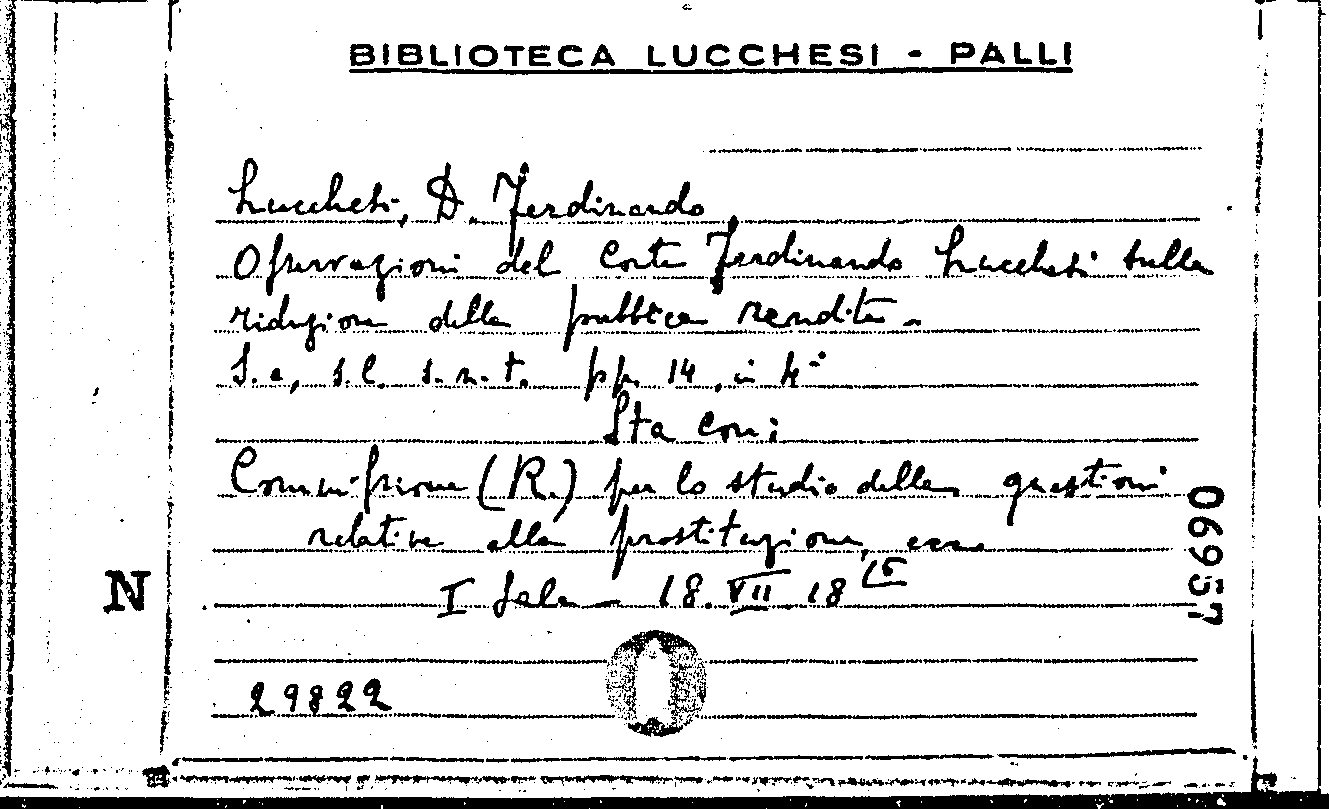 BIBLIOTECA LUCCHESI - PALLI
Lucchesi, D. Ferdinando
Osservazioni del Conte Ferdinando Lucchesi sulla
riduzione della pubblica rendita.
S. a., s. l. s. n. t. pp. 14, in 4°
Sta con:
Commissione (R.) per lo studio delle questioni
relative alla prostituzione, ecc.
N
I Sala - 18. VII 18 (5
06957
29822